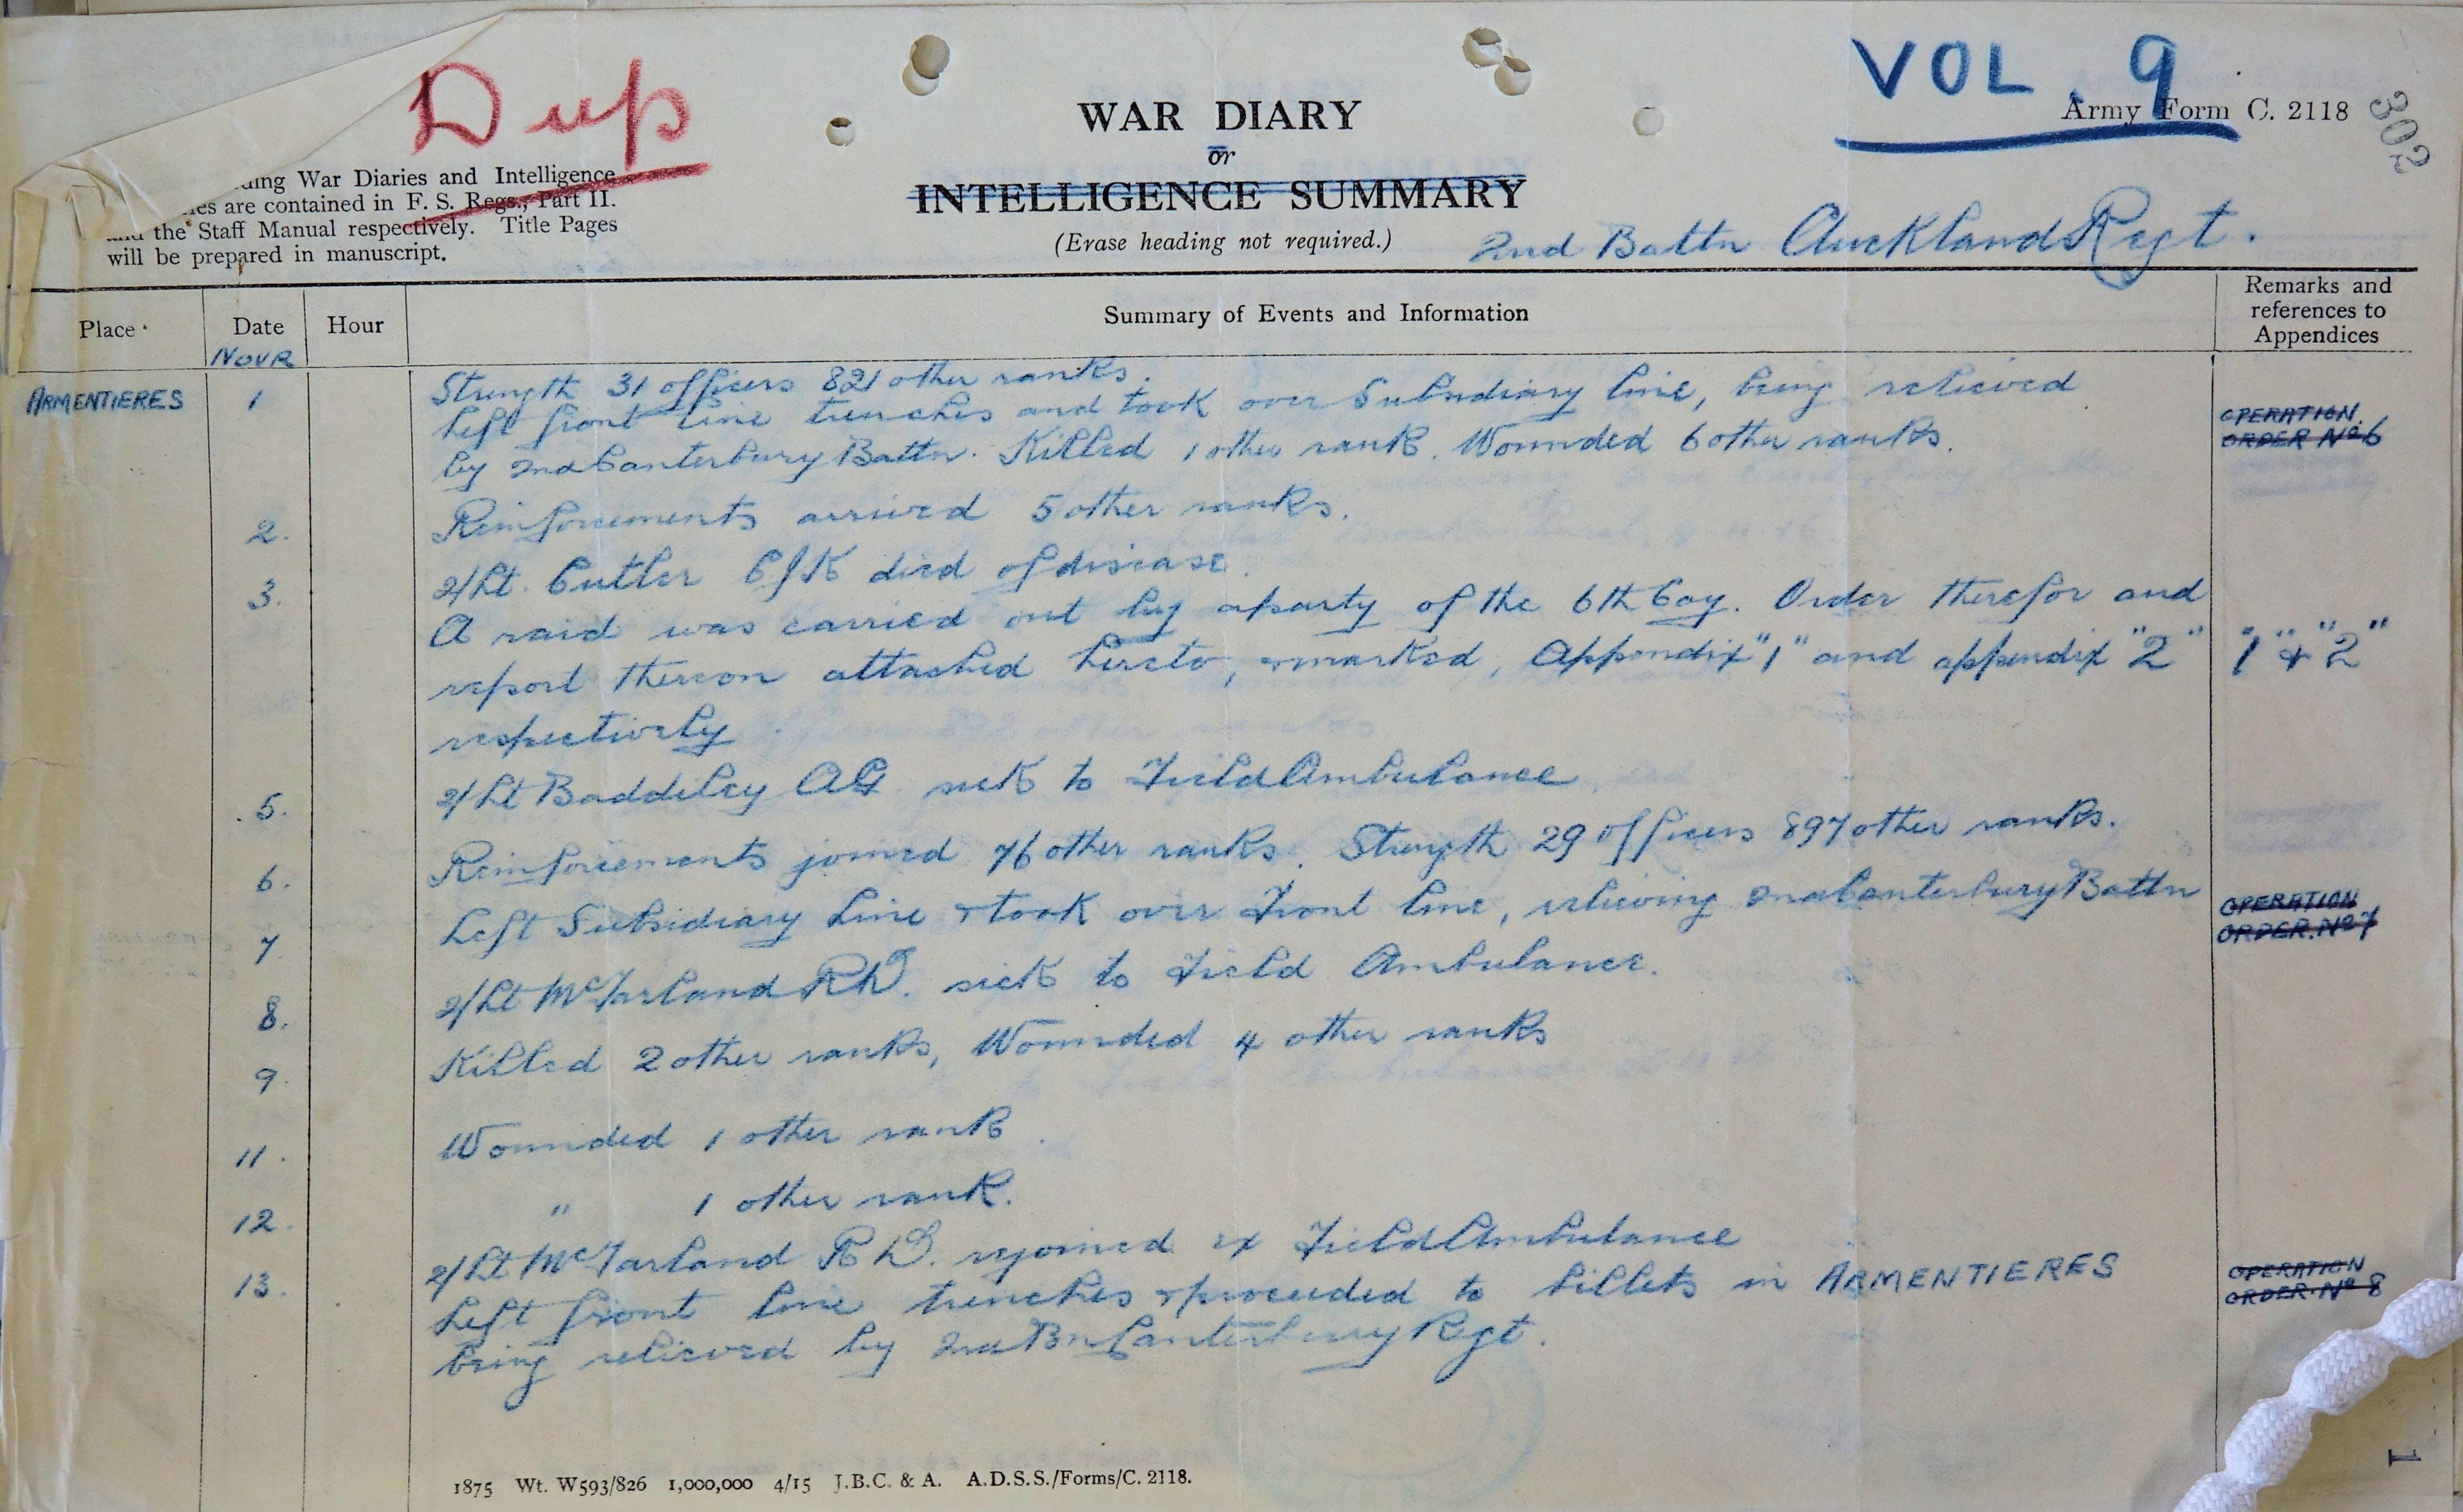 Dup
VOL. 9
Army Form C. 2118
302
WAR DIARY
or
INTELLIGENCE SUMMARY
(Erase heading not required.)
2nd Battn Auckland Regt.
War Diaries and Intelligence
are contained in F. S. Regs., Part II.
the Staff Manual respectively. Title Pages
will be prepared in manuscript.
Place Date Hour Summary of Events and Information Remarks and references to Appendices
NOVR
ARMENTIERES 1 Strength 31 officers 821 other ranks.
Left front line trenches and took over Subsidiary line, being relieved OPERATION
by 2nd Canterbury Battn. Killed 1 other rank. Wounded 6 other ranks. ORDER No. 6
2. Reinforcements arrived 5 other ranks.
3. 2/Lt. Cutler C J K died of disease.
A raid was carried out by a party of the 6th Coy. Order therefor and
report thereon attached hereto, & marked, Appendix "1" and appendix "2" "1" & "2"
respectively
5. 2/Lt Baddiley AG sick to Field Ambulance
6. Reinforcements joined 76 other ranks. Strength 29 officers 897 other ranks.
7. Left Subsidiary Line & took over Front line, relieving 2nd Canterbury Battn OPERATION
ORDER. No 7
8. 2/Lt McFarland sick to Field Ambulance.
9. Killed 2 other ranks, Wounded 4 other ranks
11. Wounded 1 other rank.
12. " 1 other rank.
13. 2/Lt McFarland rejoined ex Field Ambulance
Left front line trenches & proceeded to billets in ARMENTIERES OPERATION
being relieved by 2nd Bn Canterbury Regt. ORDER. No 8
1875 Wt. W593/826 1,000,000 4/15 J.B.C. & A. A.D.S.S./Forms/C. 2118.
1